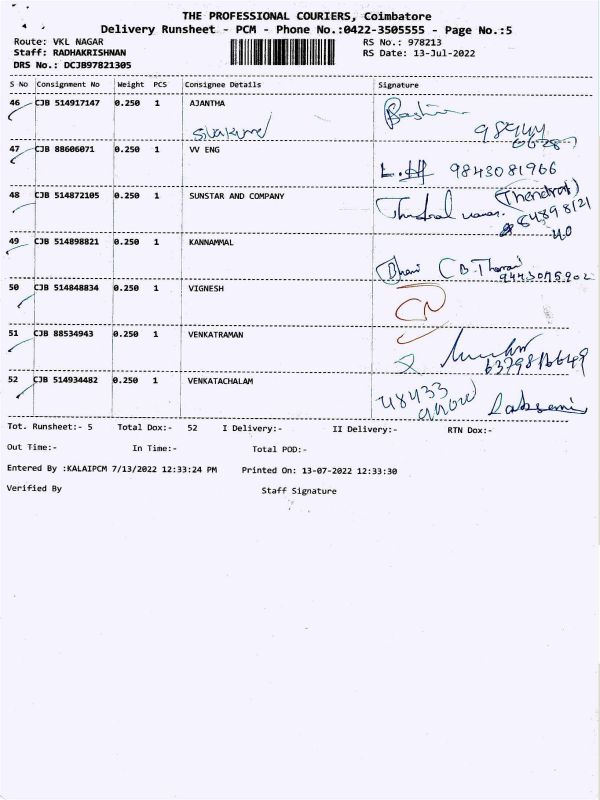 THE PROFESSIONAL COURIERS, Coimbatore
Delivery Runsheet - PCM - Phone No.:0422-3505555 - Page No.:5
Route: VKL NAGAR RS No.: 978213
Staff: RADHAKRISHNAN RS Date: 13-Jul-2022
DRS No.: DCJB97821305
S No Consignment No Weight PCS Consignee Details Signature
46 CJB 514917147 0.250 1 AJANTHA
Sivakumar
47 CJB 88606071 0.250 1 VV ENG
9843081966
48 CJB 514872105 0.250 1 SUNSTAR AND COMPANY
(Thendral)
49 CJB 514898821 0.250 1 KANNAMMAL
50 CJB 514848834 0.250 1 VIGNESH
51 CJB 88534943 0.250 1 VENKATRAMAN
52 CJB 514934482 0.250 1 VENKATACHALAM
48433
Tot. Runsheet:- 5 Total Dox:- 52 I Delivery:- II Delivery:- RTN Dox:-
Out Time:- In Time:- Total POD:-
Entered By :KALAIPCM 7/13/2022 12:33:24 PM Printed On: 13-07-2022 12:33:30
Verified By Staff Signature